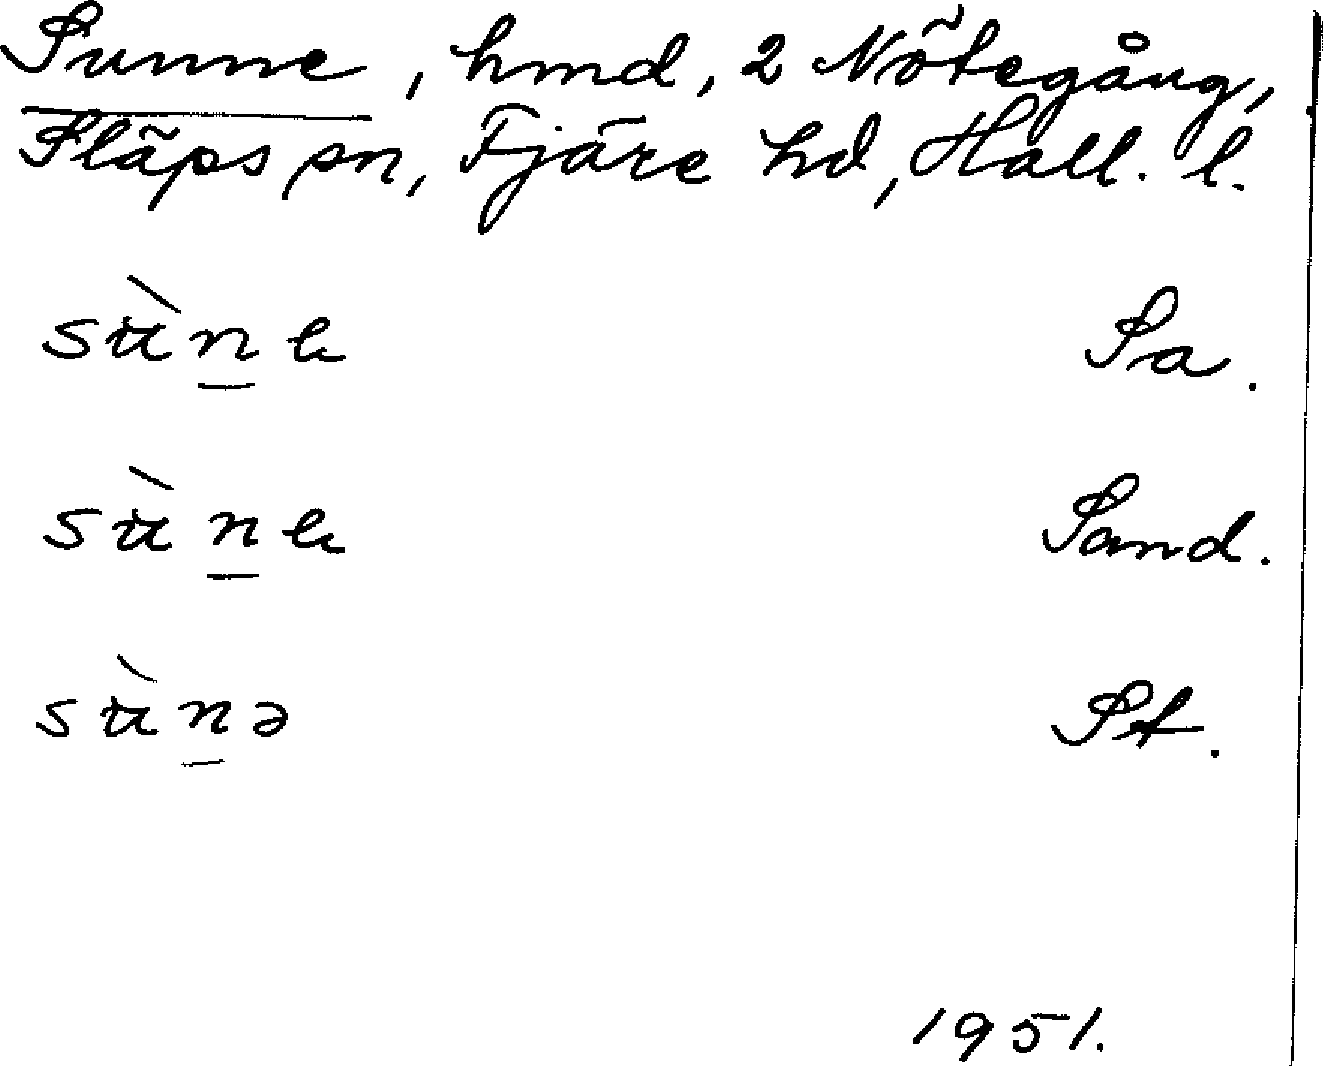 Sunne, hmd, 2 Nötegång,
Släps sn, Fjäre hd, Hall. l.
sùne Sa.
sùne Sand.
sùnə St.
1951.